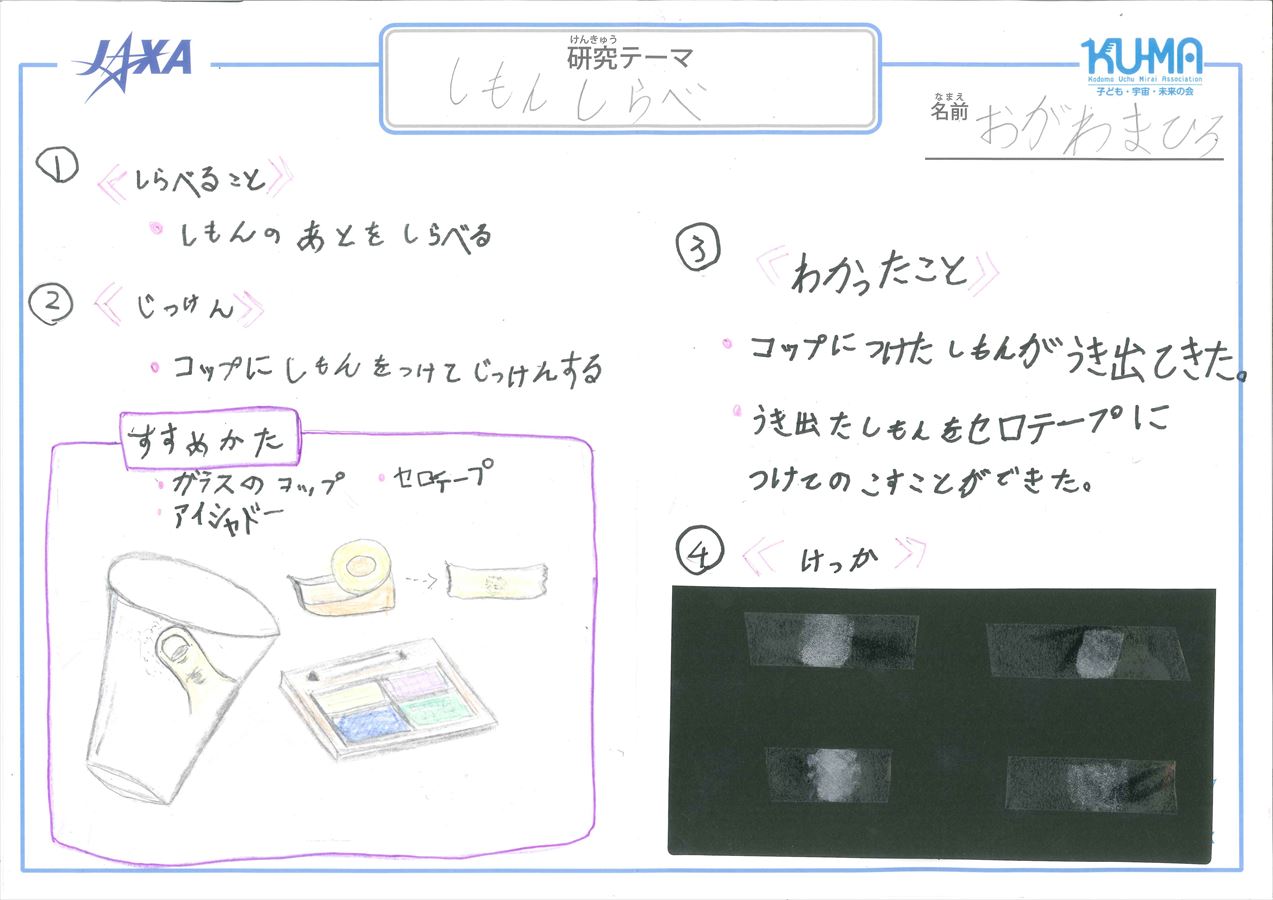 JAXA
けんきゅう
研究テーマ
しもんしらべ
KU-MA
Kodomo Uchu Mirai Association
子ども・宇宙・未来の会
なまえ
名前 おがわまひろ
① 《しらべること》
・しもんのあとをしらべる
② 《じっけん》
・コップにしもんをつけてじっけんする
すすめかた
・ガラスのコップ ・セロテープ
・アイシャドー
③ 《わかったこと》
・コップにつけたしもんがうき出てきた。
・うき出たしもんをセロテープに
つけてのこすことができた。
④ 《けっか》